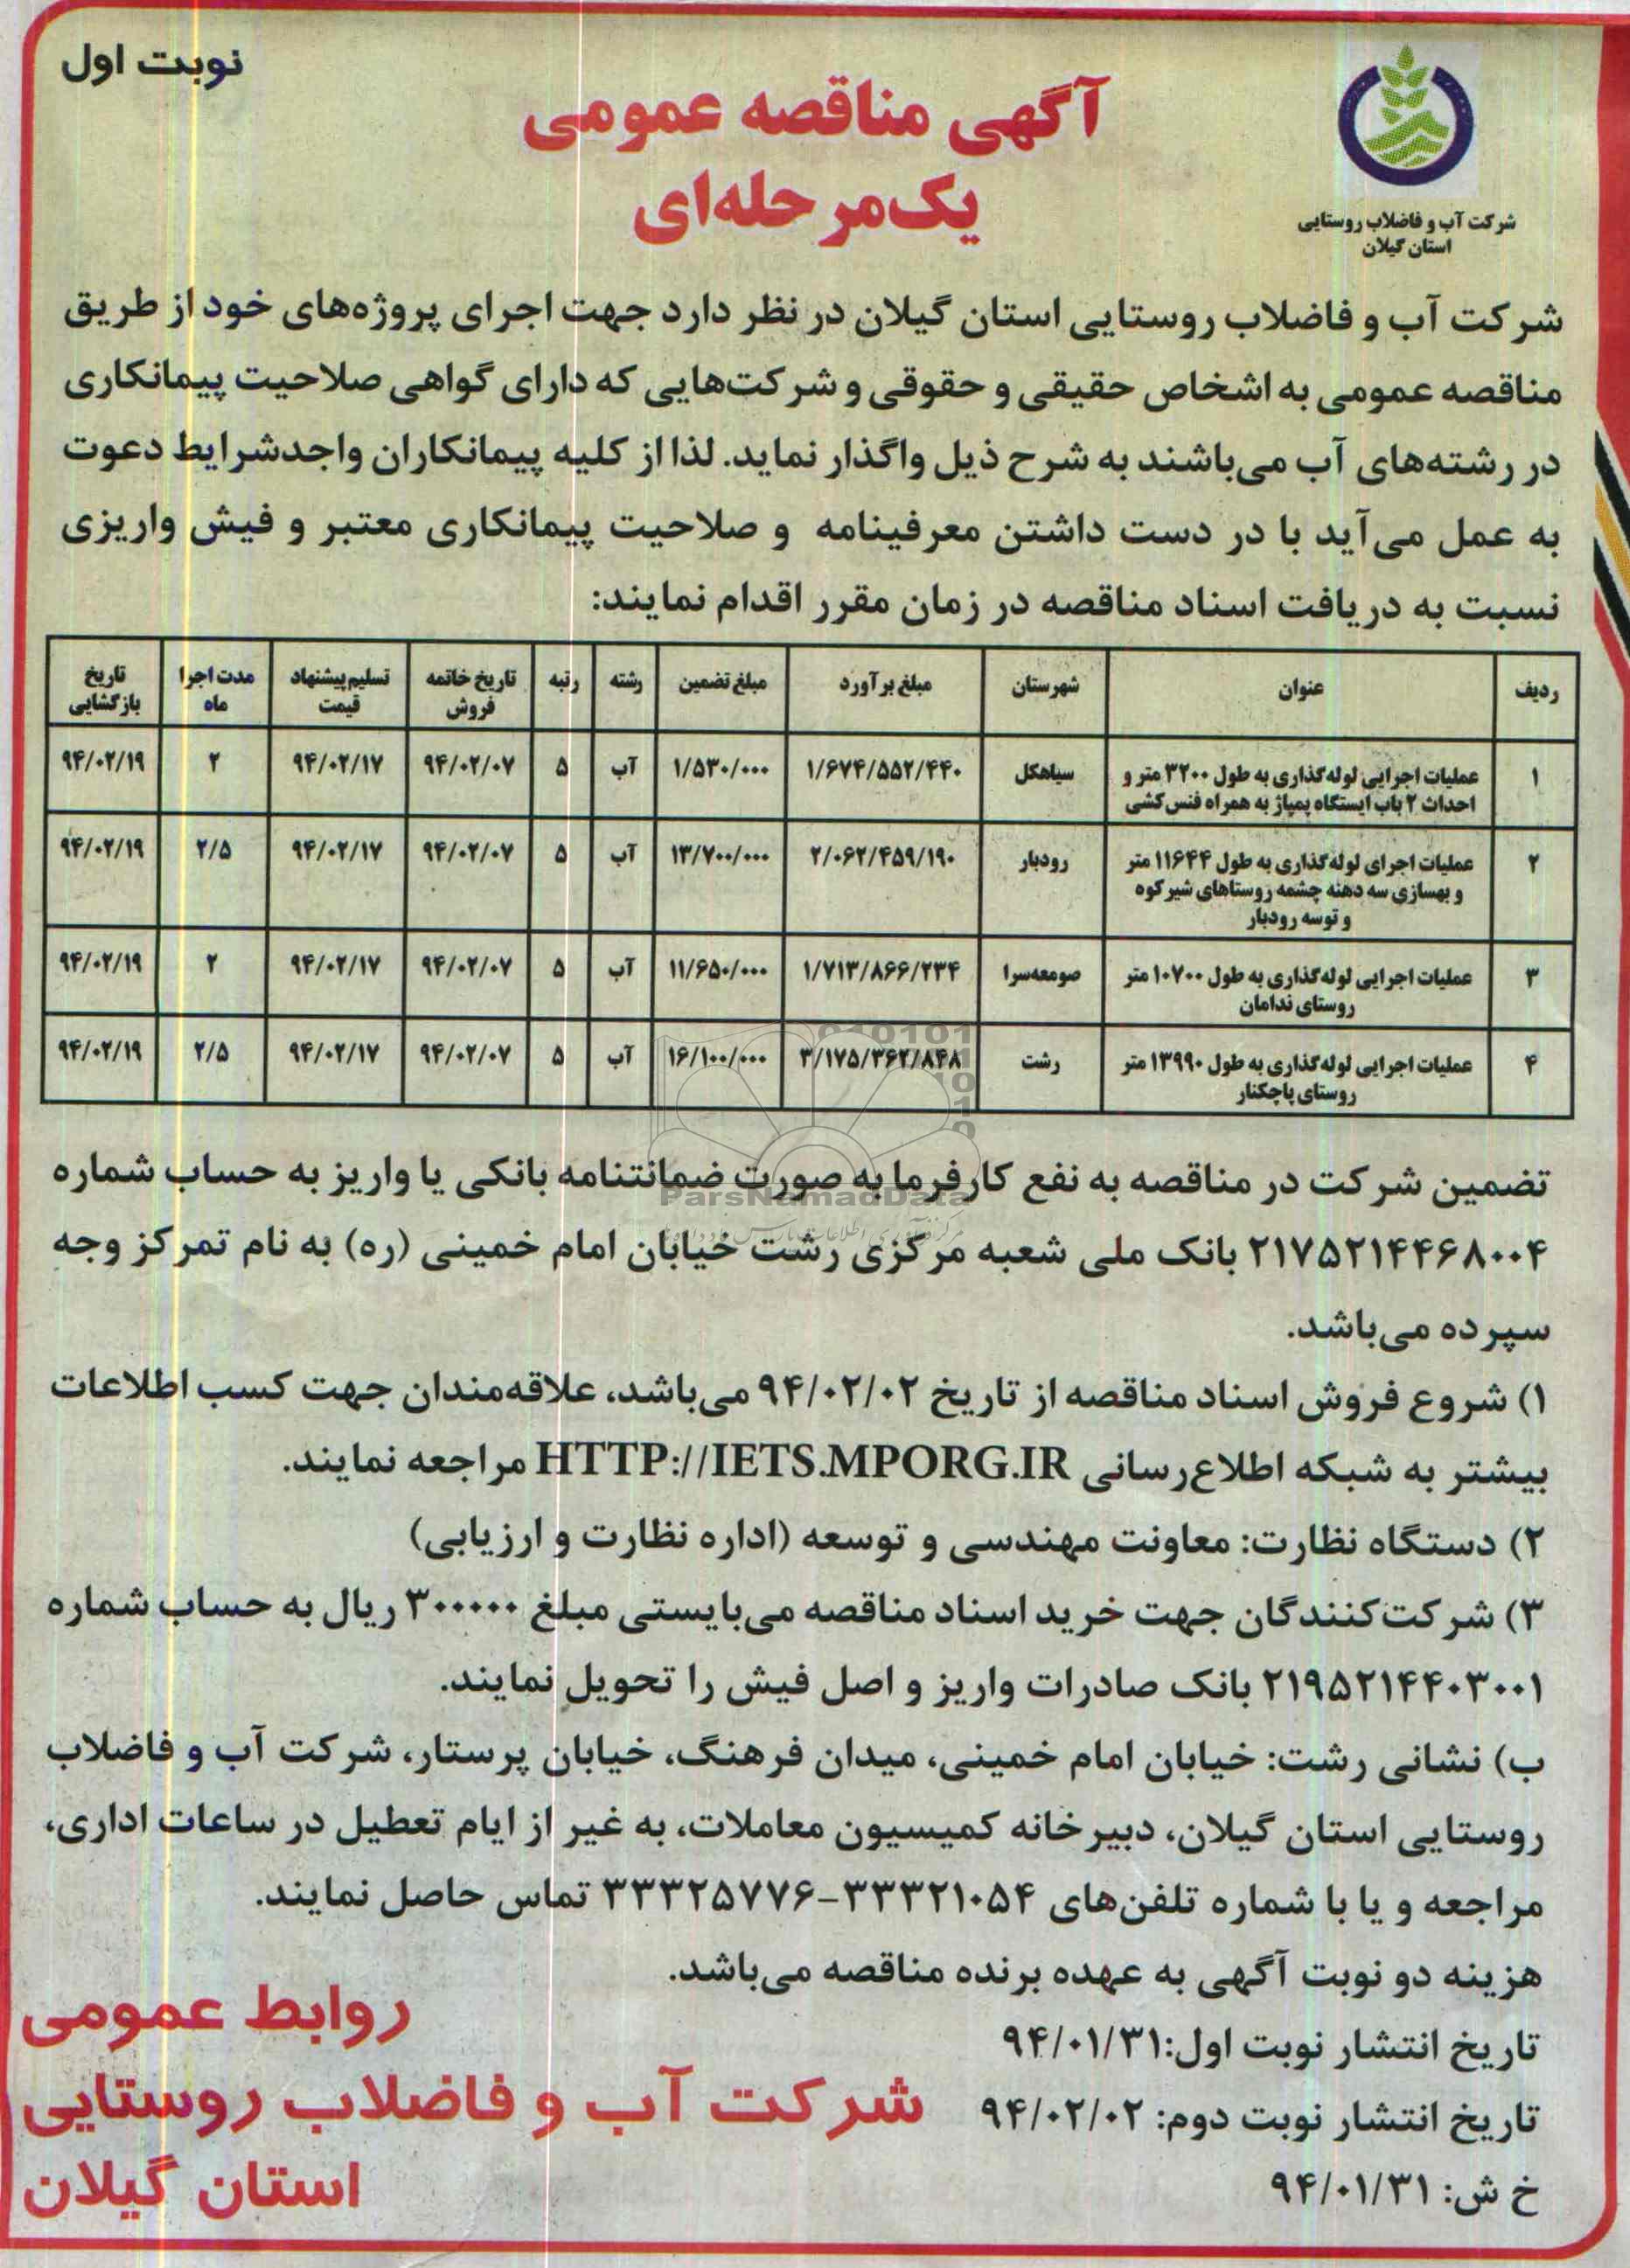 نوبت اول
آگهی مناقصه عمومی
یک‌مرحله‌ای
شرکت آب و فاضلاب روستایی
استان گیلان
شرکت آب و فاضلاب روستایی استان گیلان در نظر دارد جهت اجرای پروژه‌های خود از طریق
مناقصه عمومی به اشخاص حقیقی و حقوقی و شرکت‌هایی که دارای گواهی صلاحیت پیمانکاری
در رشته‌های آب می‌باشند به شرح ذیل واگذار نماید. لذا از کلیه پیمانکاران واجدشرایط دعوت
به عمل می‌آید با در دست داشتن معرفینامه و صلاحیت پیمانکاری معتبر و فیش واریزی
نسبت به دریافت اسناد مناقصه در زمان مقرر اقدام نمایند:
ردیف عنوان شهرستان مبلغ برآورد مبلغ تضمین رشته رتبه تاریخ خاتمه فروش تسلیم پیشنهاد قیمت مدت اجرا ماه تاریخ بازگشایی
۱ عملیات اجرایی لوله‌گذاری به طول ۳۲۰۰ متر و احداث ۲ باب ایستگاه پمپاژ به همراه فنس‌کشی سیاهکل ۱/۶۷۴/۵۵۲/۴۴۰ ۱/۵۳۰/۰۰۰ آب ۵ ۹۴/۰۲/۰۷ ۹۴/۰۲/۱۷ ۲ ۹۴/۰۲/۱۹
۲ عملیات اجرای لوله‌گذاری به طول ۱۱۶۴۴ متر و بهسازی سه دهنه چشمه روستاهای شیرکوه و توسه رودبار رودبار ۲/۰۶۲/۴۵۹/۱۹۰ ۱۳/۷۰۰/۰۰۰ آب ۵ ۹۴/۰۲/۰۷ ۹۴/۰۲/۱۷ ۲/۵ ۹۴/۰۲/۱۹
۳ عملیات اجرایی لوله‌گذاری به طول ۱۰۷۰۰ متر روستای ندامان صومعه‌سرا ۱/۷۱۳/۸۶۶/۲۳۴ ۱۱/۶۵۰/۰۰۰ آب ۵ ۹۴/۰۲/۰۷ ۹۴/۰۲/۱۷ ۲ ۹۴/۰۲/۱۹
۴ عملیات اجرایی لوله‌گذاری به طول ۱۳۹۹۰ متر روستای پاچکنار رشت ۳/۱۷۵/۳۶۲/۸۴۸ ۱۶/۱۰۰/۰۰۰ آب ۵ ۹۴/۰۲/۰۷ ۹۴/۰۲/۱۷ ۲/۵ ۹۴/۰۲/۱۹
ParsNamadData
تضمین شرکت در مناقصه به نفع کارفرما به صورت ضمانتنامه بانکی یا واریز به حساب شماره
۲۱۷۵۲۱۴۴۶۸۰۰۴ بانک ملی شعبه مرکزی رشت خیابان امام خمینی (ره) به نام تمرکز وجه
سپرده می‌باشد.
۱) شروع فروش اسناد مناقصه از تاریخ ۹۴/۰۲/۰۲ می‌باشد، علاقه‌مندان جهت کسب اطلاعات
بیشتر به شبکه اطلاع‌رسانی HTTP://IETS.MPORG.IR مراجعه نمایند.
۲) دستگاه نظارت: معاونت مهندسی و توسعه (اداره نظارت و ارزیابی)
۳) شرکت‌کنندگان جهت خرید اسناد مناقصه می‌بایستی مبلغ ۳۰۰۰۰۰ ریال به حساب شماره
۲۱۹۵۲۱۴۴۰۳۰۰۱ بانک صادرات واریز و اصل فیش را تحویل نمایند.
ب) نشانی رشت: خیابان امام خمینی، میدان فرهنگ، خیابان پرستار، شرکت آب و فاضلاب
روستایی استان گیلان، دبیرخانه کمیسیون معاملات، به غیر از ایام تعطیل در ساعات اداری،
مراجعه و یا با شماره تلفن‌های ۳۳۳۲۱۰۵۴-۳۳۳۲۵۷۷۶ تماس حاصل نمایند.
هزینه دو نوبت آگهی به عهده برنده مناقصه می‌باشد.
تاریخ انتشار نوبت اول:۹۴/۰۱/۳۱
تاریخ انتشار نوبت دوم: ۹۴/۰۲/۰۲
خ ش: ۹۴/۰۱/۳۱
روابط عمومی
شرکت آب و فاضلاب روستایی
استان گیلان